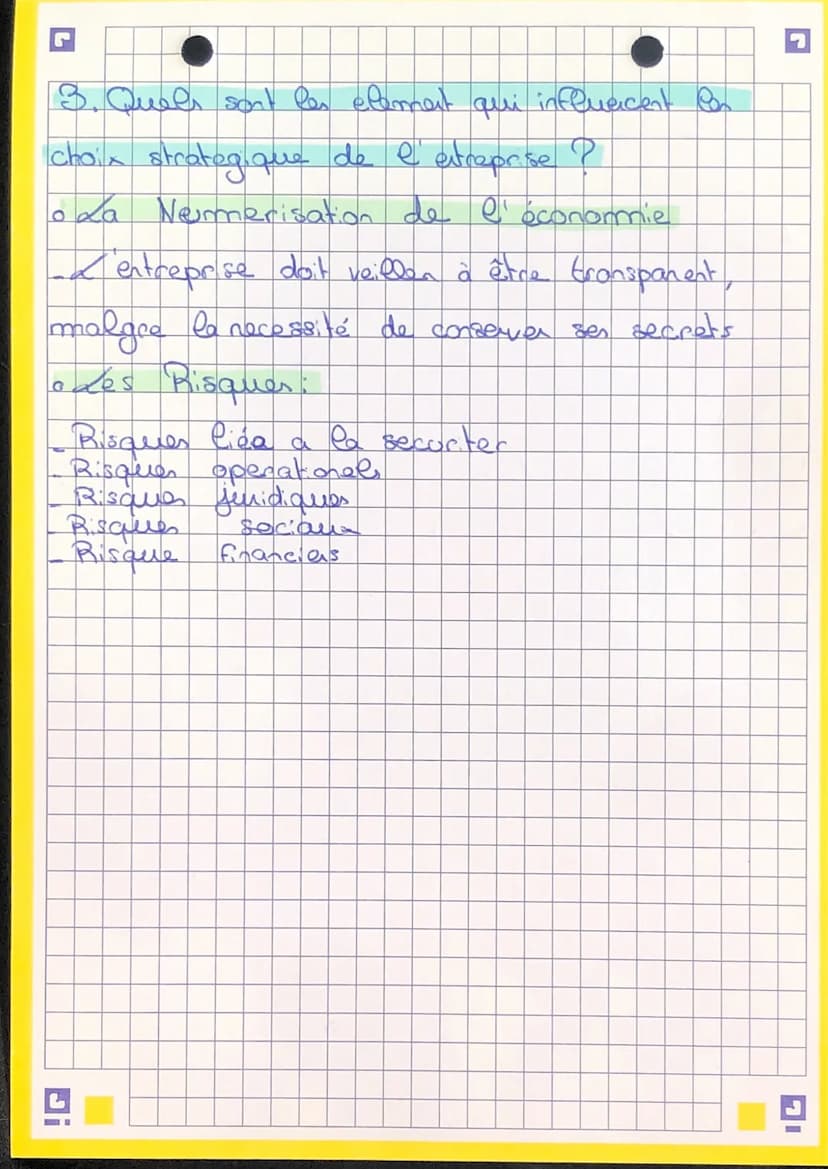 3. Quels sont les element qui influencent les
choix strategique de l'entreprise ?
o La Nermerisation de l'économie
- L'entreprise doit veiller à être transparent,
malgre la necessité de conserver ses secrets
o Les Risques :
- Risques liéa a la securiter
- Risques operationels
- Risques juridiques
- Risques sociaux
- Risque financiers